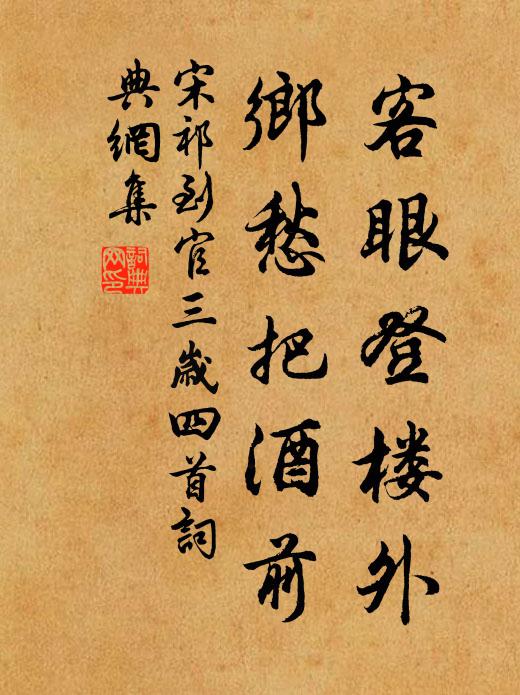 客眼登楼外
鄉愁把酒前
宋祁到官三歲四首詞
典網集
詞典网印